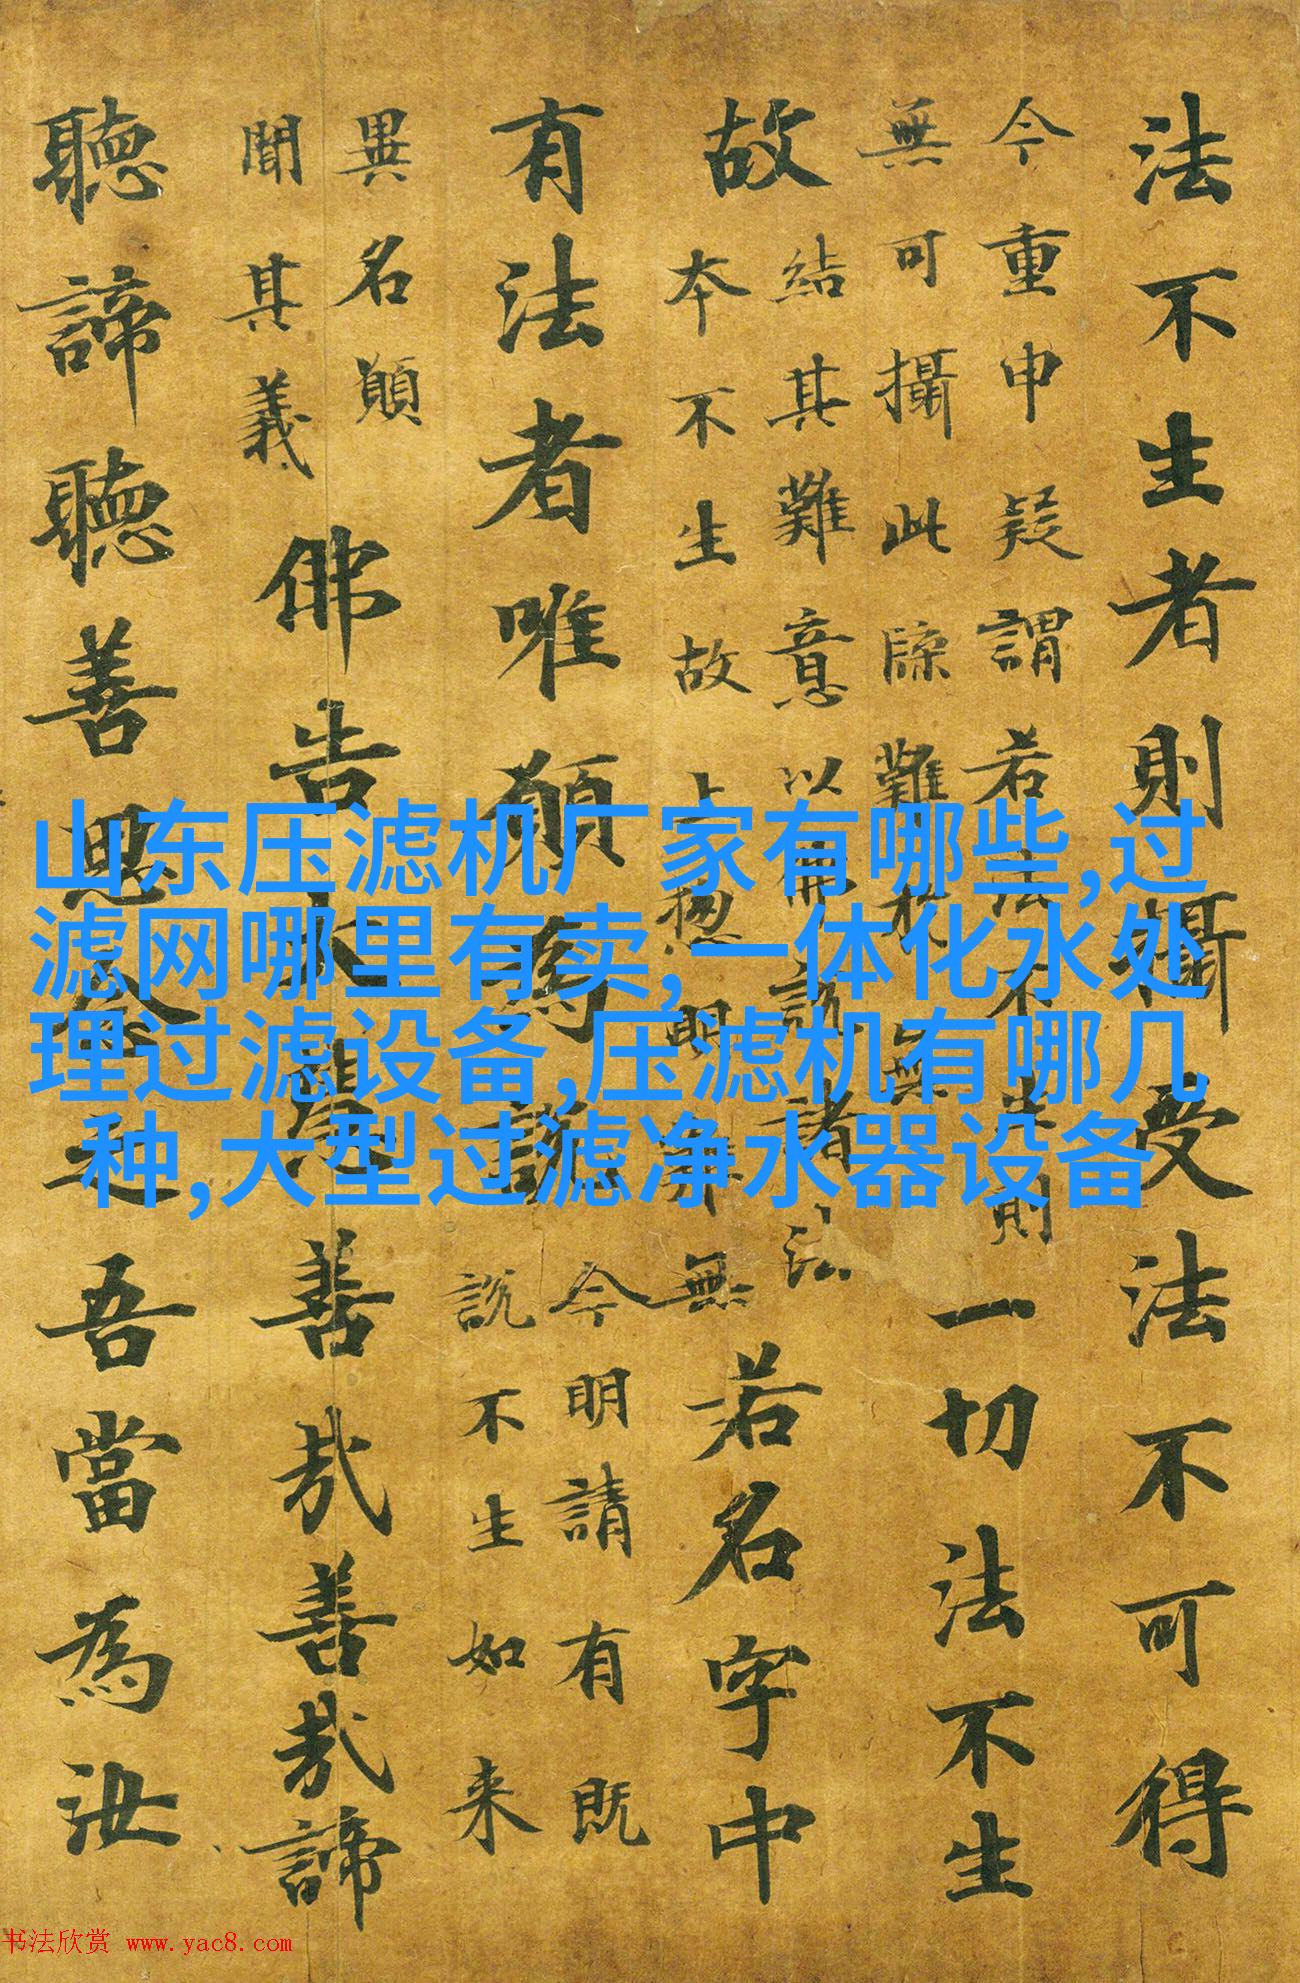 法不生者則攝受法不可得
今重申疑謂若法不生則
無可攝此牒難無
一切法不生
故
結其難意以佛說諸法
本不生故上惣明無
若名字中
有法者唯願為說
今明請有既
說不生如来
異名願
聞其義
佛告大慧善哉善哉諦
聽諦聽善思念之吾當為汝
山东压滤机厂家有哪些,过
滤网哪里有卖,一体化水处
理过滤设备,压滤机有哪几
种,大型过滤净水器设备
书法欣赏 www.yac8.com